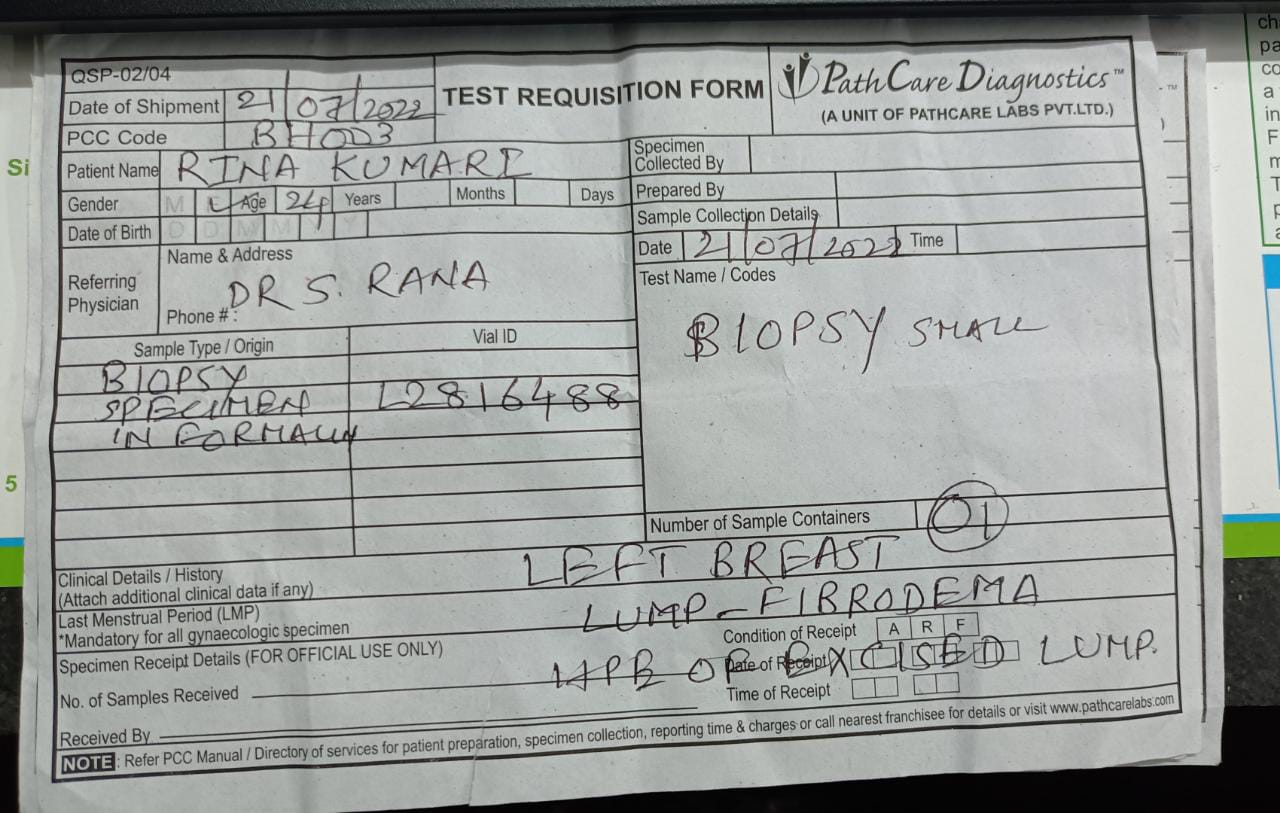 QSP-02/04
Date of Shipment 21/07/2022
PCC Code BH0D3
TEST REQUISITION FORM
PathCare Diagnostics™
(A UNIT OF PATHCARE LABS PVT.LTD.)
Patient Name RINA KUMARI
Gender M Age 24 Years Months Days
Date of Birth D D M M Y Y
Referring Physician
Name & Address
DR S. RANA
Phone # :
Specimen Collected By
Prepared By
Sample Collection Details
Date 21/07/2022 Time
Test Name / Codes
BIOPSY SMALL
Sample Type / Origin Vial ID
BIOPSY
SPECIMEN L2816488
IN FORMALIN
Number of Sample Containers 01
Clinical Details / History LEFT BREAST
(Attach additional clinical data if any)
Last Menstrual Period (LMP) LUMP - FIBRODEMA
*Mandatory for all gynaecologic specimen
Condition of Receipt A R F
Specimen Receipt Details (FOR OFFICIAL USE ONLY)
Date of Receipt
HPE OF EXCISED LUMP.
No. of Samples Received
Time of Receipt
Received By
NOTE : Refer PCC Manual / Directory of services for patient preparation, specimen collection, reporting time & charges or call nearest franchisee for details or visit www.pathcarelabs.com